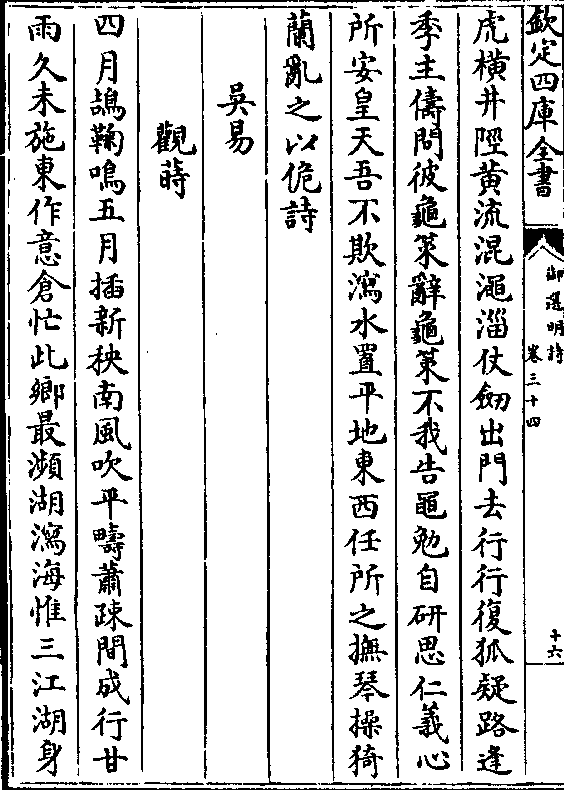 欽定四庫全書
御選明詩
卷三十四
十六
虎橫井陘黃流混澠淄仗劒出門去行行復狐疑路逢
季主儔問彼龜筴辭龜筴不我告黽勉自研思仁義心
所安皇天吾不欺瀉水置平地東西任所之撫琴操猗
蘭亂之以佹詩
吳易
觀蒔
四月鴣鞠鳴五月插新秧南風吹平疇蕭疎間成行甘
雨久未施東作意倉忙此鄉最瀕湖瀉海惟三江湖身